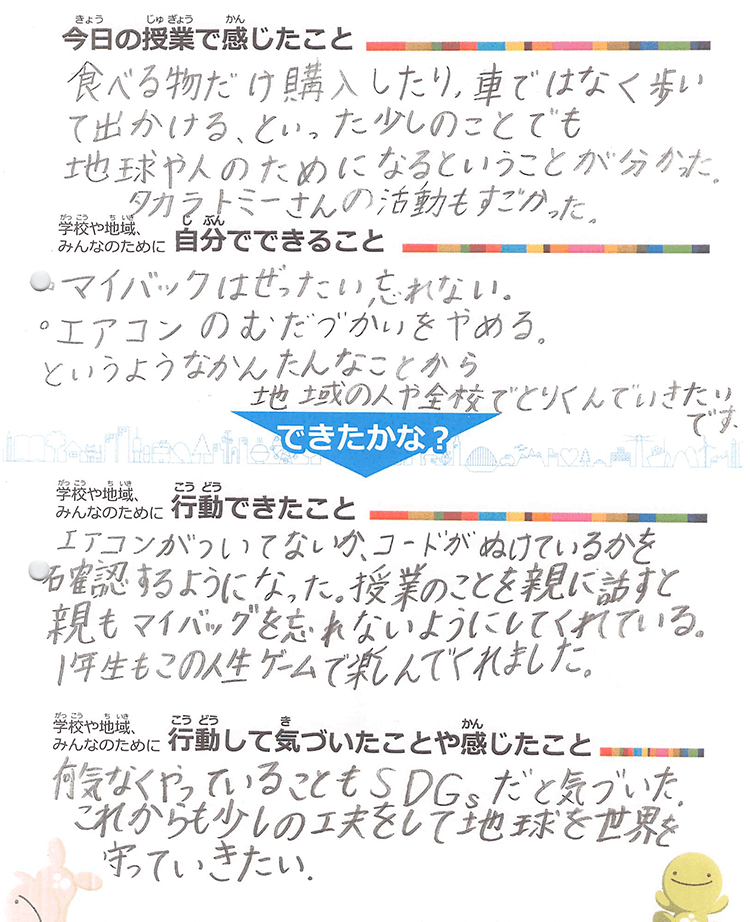 今日の授業で感じたこと
食べる物だけ購入したり,車ではなく歩い
て出かける、といった少しのことでも
地球や人のためになるということが分かった。
タカラトミーさんの活動もすごかった。
学校や地域、
みんなのために 自分でできること
・マイバックはぜったい忘れない。
○エアコンのむだづかいをやめる。
というようなかんたんなことから
地域の人や全校でとりくんでいきたい
です.
できたかな?
学校や地域、
みんなのために 行動できたこと
エアコンがついてないか、コードがぬけているかを
確認するようになった。授業のことを親に話すと
親もマイバッグを忘れないようにしてくれている。
1年生もこの人生ゲームで楽しんでくれました。
学校や地域、
みんなのために 行動して気づいたことや感じたこと
何気なくやっていることもSDGsだと気づいた.
これからも少しの工夫をして地球を世界を
守っていきたい.